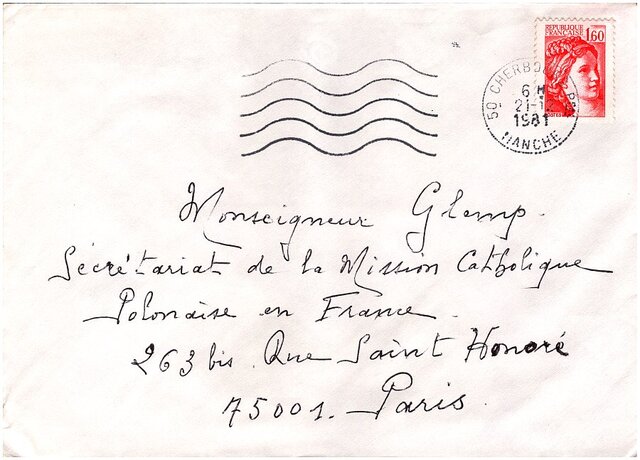 REPUBLIQUE
FRANCAISE
1,60
50 CHERBOURG
6 H
21-1
1981
MANCHE
Monseigneur Glemp.
Sécrétariat de la Mission Catholique
Polonaise en France.
263 bis Rue Saint Honoré
75001. Paris.